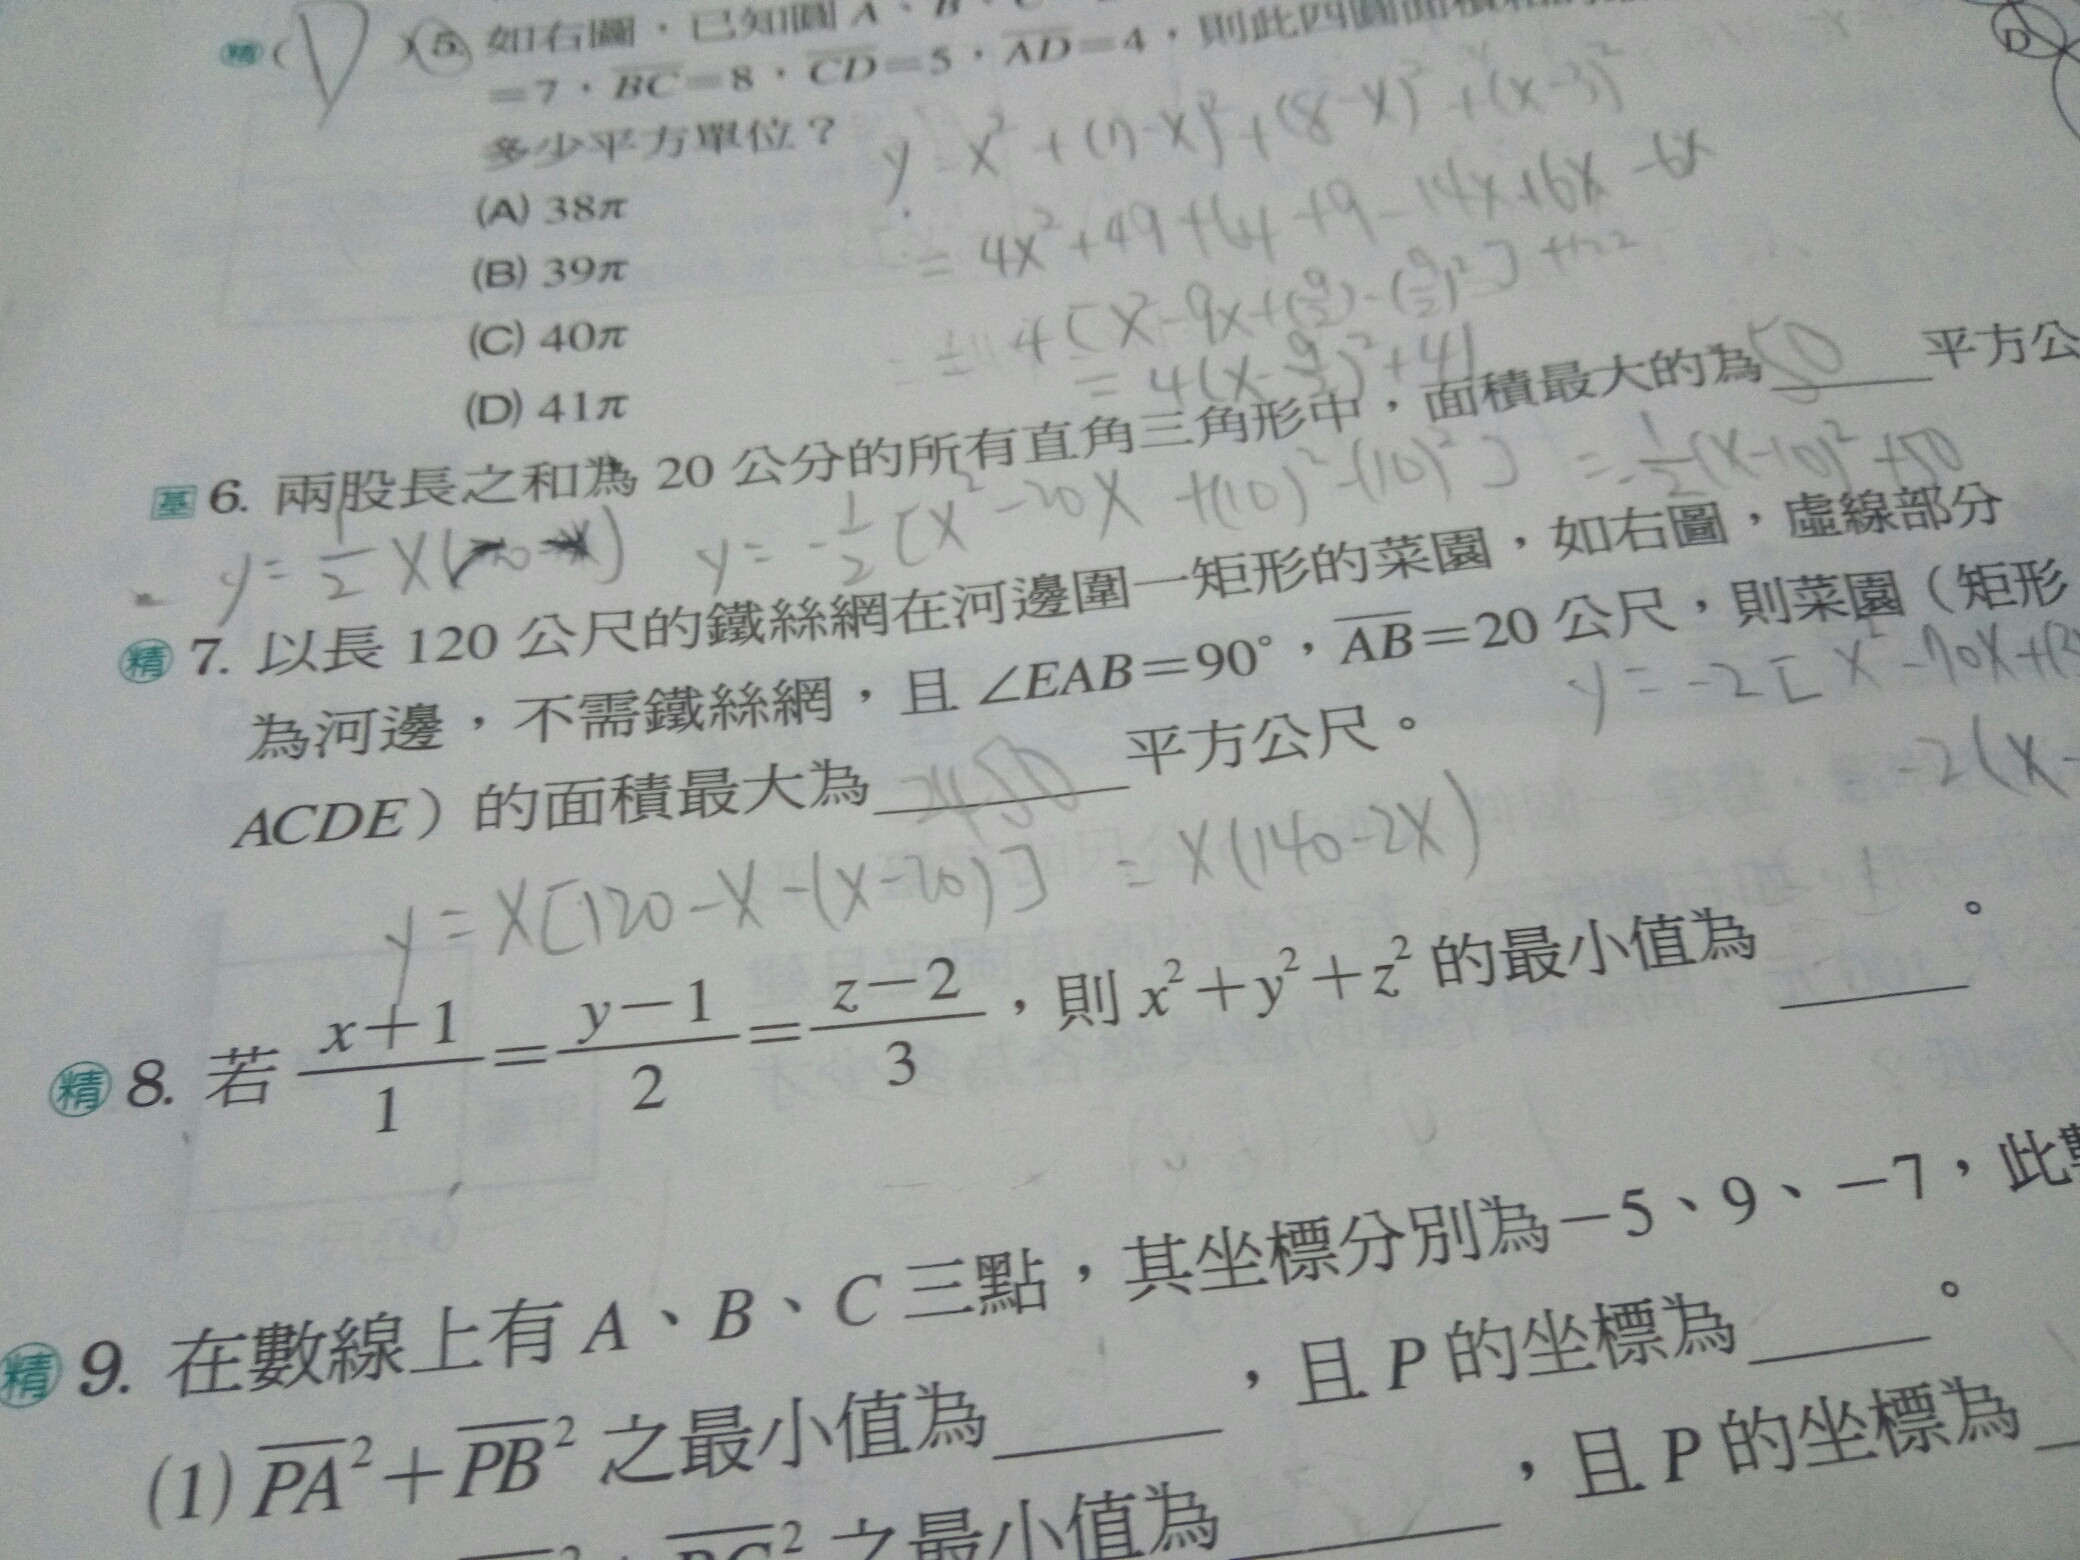 精 ( D ) 5. 如右圖，已知圓 A、B、C
=7，BC=8，CD=5，AD=4，則此四圓面積和
多少平方單位？
y = x² + (7-x)² + (8-x)² + (x-3)²
(A) 38π
= 4x² + 49 + 64 + 9 - 14x - 16x - 6x
(B) 39π
4[x² - 9x + (9/2)² - (9/2)²] + 122
(C) 40π
= 4(x - 9/2)² + 41
(D) 41π
基 6. 兩股長之和為 20 公分的所有直角三角形中，面積最大的為 50 平方公
y = 1/2 x(20-x) y = -1/2 [x² - 20x + (10)² - (10)²] = -1/2 (x-10)² + 50
精 7. 以長 120 公尺的鐵絲網在河邊圍一矩形的菜園，如右圖，虛線部分
為河邊，不需鐵絲網，且 ∠EAB=90°，AB=20 公尺，則菜園（矩形
y = -2[x² - 70x + (3
ACDE）的面積最大為 2450 平方公尺。
-2(x-
y = x[120 - x - (x-20)] = x(140-2x)
精 8. 若 (x+1)/1 = (y-1)/2 = (z-2)/3，則 x²+y²+z² 的最小值為 ______。
精 9. 在數線上有 A、B、C 三點，其坐標分別為 -5、9、-7，此
(1) PA²+PB² 之最小值為 ______，且 P 的坐標為 ______。
之最小值為 ______，且 P 的坐標為